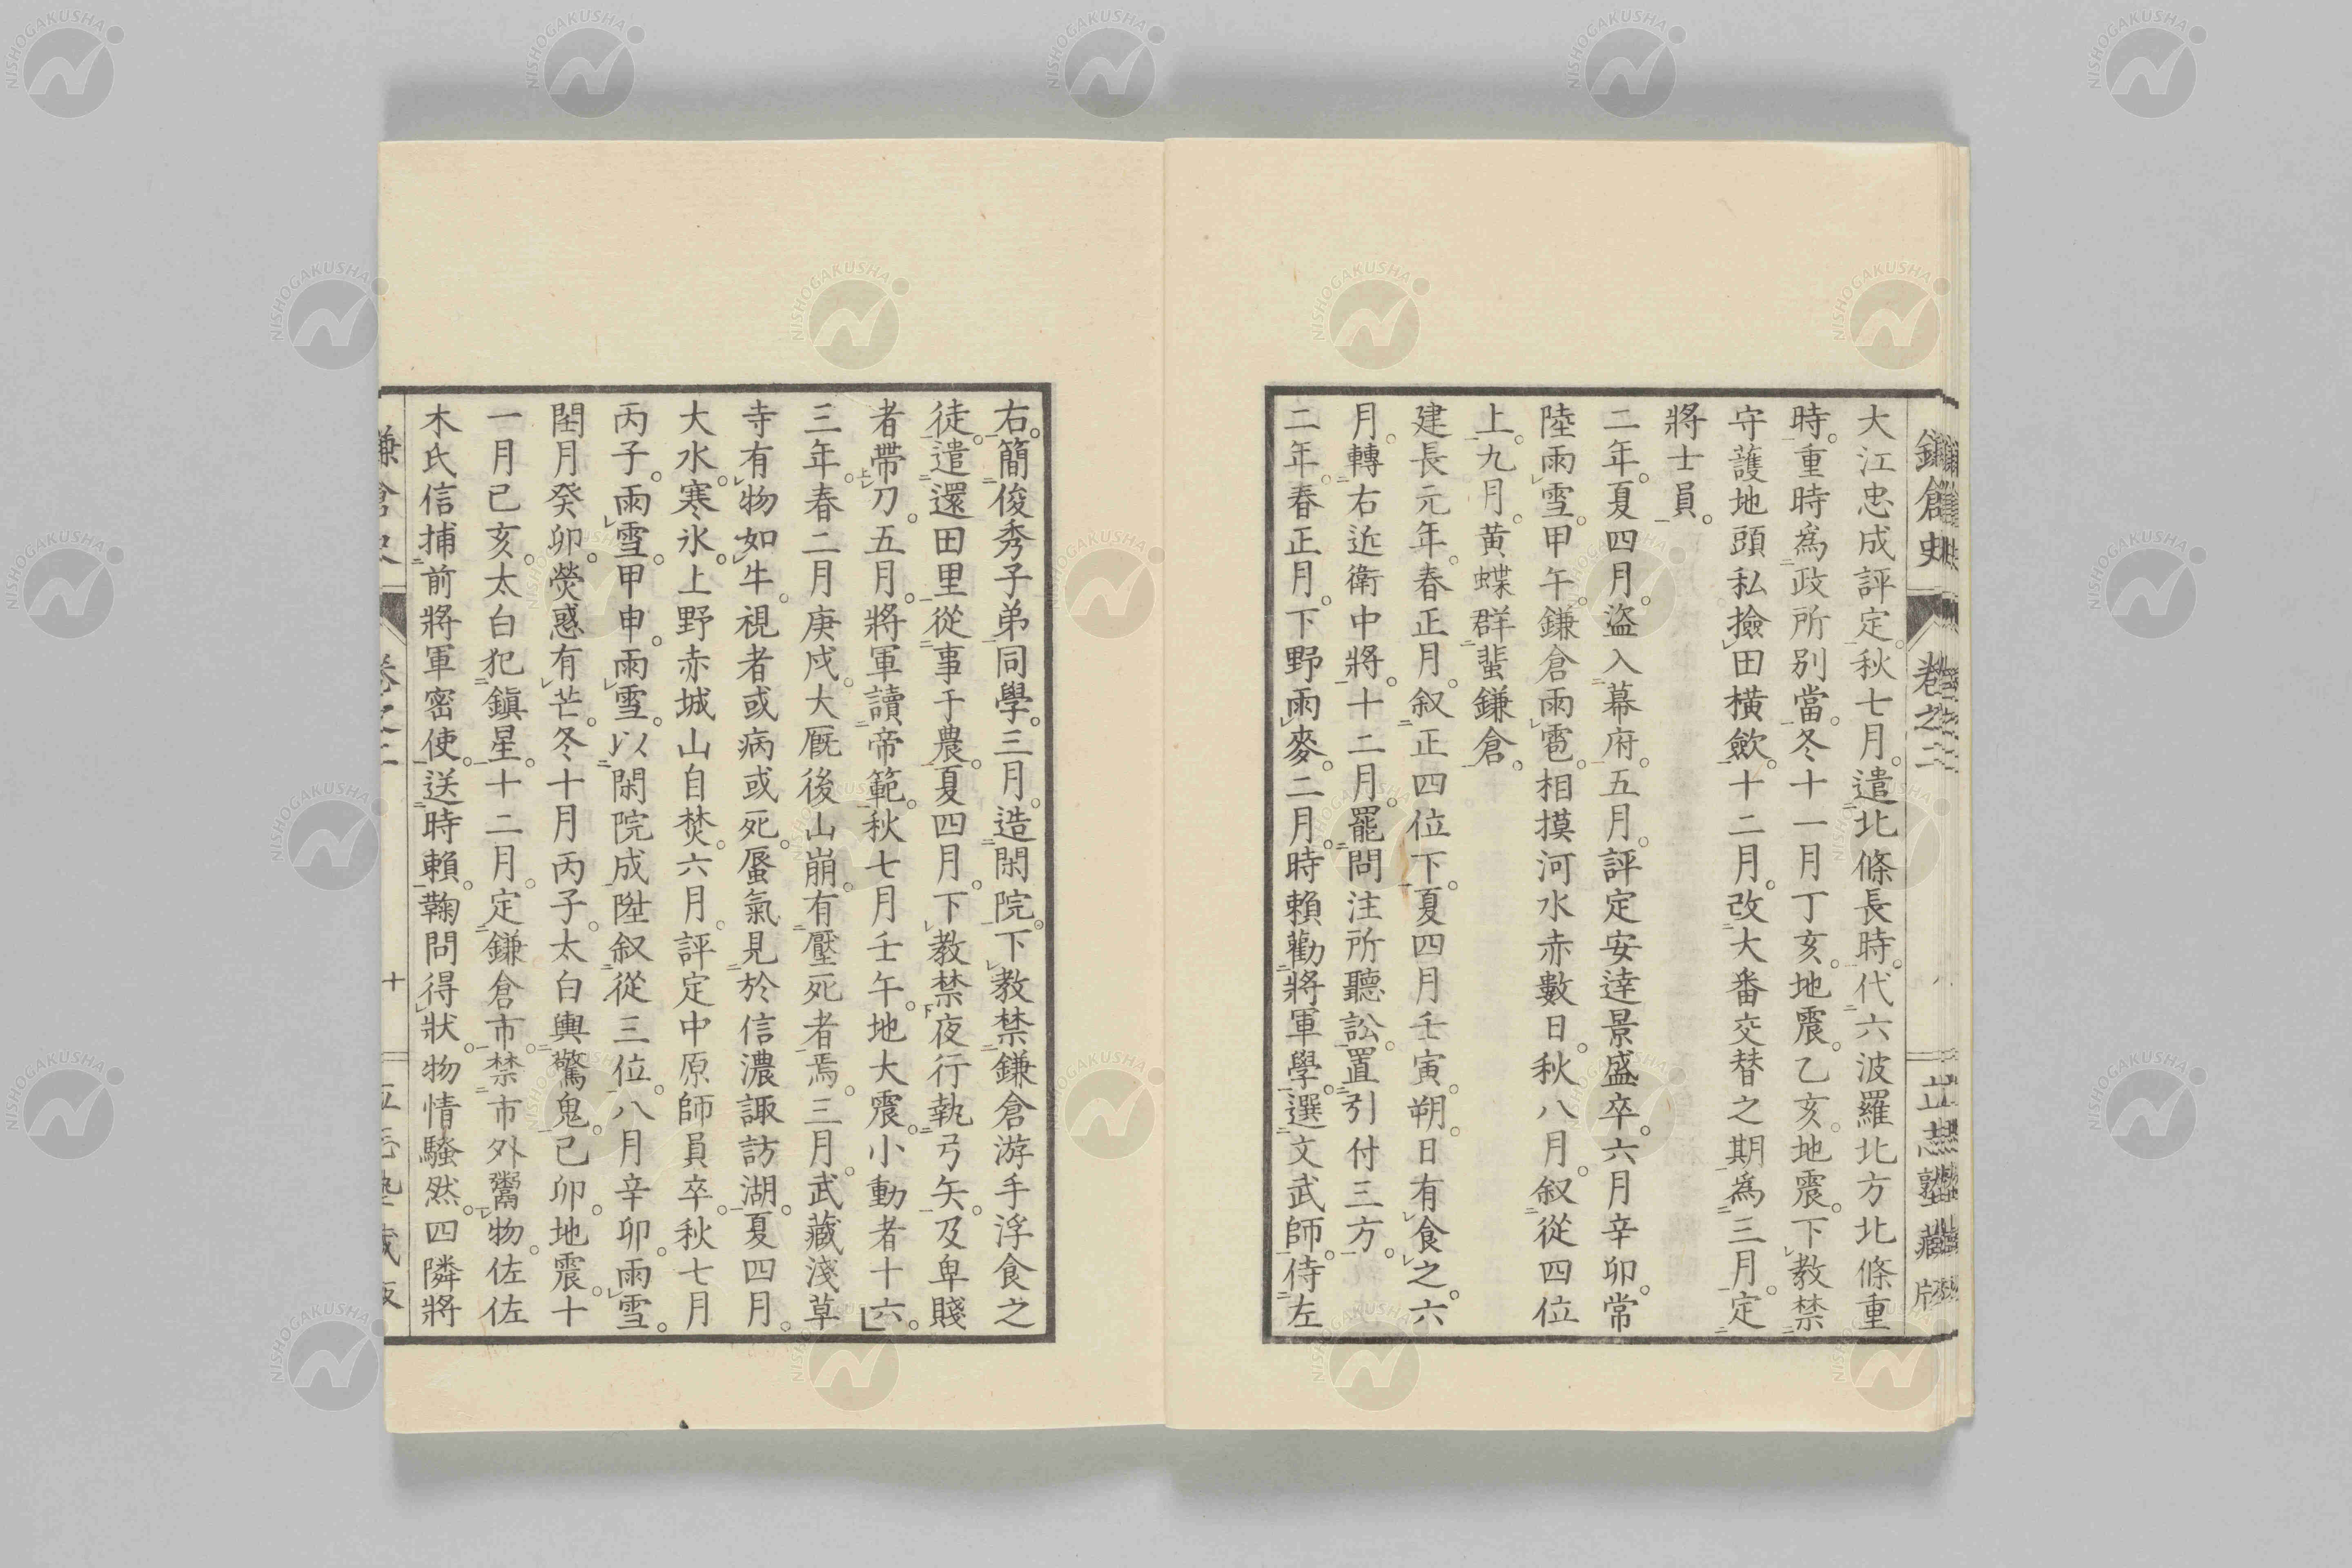 大江忠成評定。秋七月。遣北條長時。代六波羅北方北條重
時。重時爲政所別當。冬十一月丁亥。地震。乙亥。地震。下教禁
守護地頭私撿田橫歛。十二月。改大番交替之期爲三月。定
將士員。
二年。夏四月。盜入幕府。五月。評定安達景盛卒。六月辛卯。常
陸雨雪。甲午。鎌倉雨雹。相摸河水赤數日。秋八月。叙從四位
上。九月。黄蝶群蜚鎌倉。
建長元年。春正月。叙正四位下。夏四月壬寅。朔。日有食之。六
月。轉右近衛中將。十二月。罷問注所聽訟。置引付三方。
二年。春正月。下野雨麥。二月。時賴勸將軍學。選文武師。侍左
右。簡俊秀子弟同學。三月。造閑院。下教禁鎌倉游手浮食之
徒。遣還田里從事于農。夏四月。下教禁夜行執弓矢。及卑賤
者帶刀。五月。將軍讀帝範。秋七月壬午。地大震。小動者十六。
三年。春二月庚戍。大厩後山崩。有壓死者焉。三月。武藏淺草
寺有物如牛。視者或病或死。蜃氣見於信濃諏訪湖。夏四月。
大水。寒氷。上野赤城山自焚。六月。評定中原師員卒。秋七月
丙子。雨雪。甲申。雨雪。以閑院成陞叙從三位。八月辛卯。雨雪。
閏月癸卯。熒惑有芒。冬十月丙子。太白輿驚鬼。己卯。地震。十
一月己亥。太白犯鎭星。十二月。定鎌倉市。禁市外鬻物。佐佐
木氏信捕前將軍密使。送時賴。鞫問得狀。物情騷然。四隣將
鎌倉史 卷之二 十